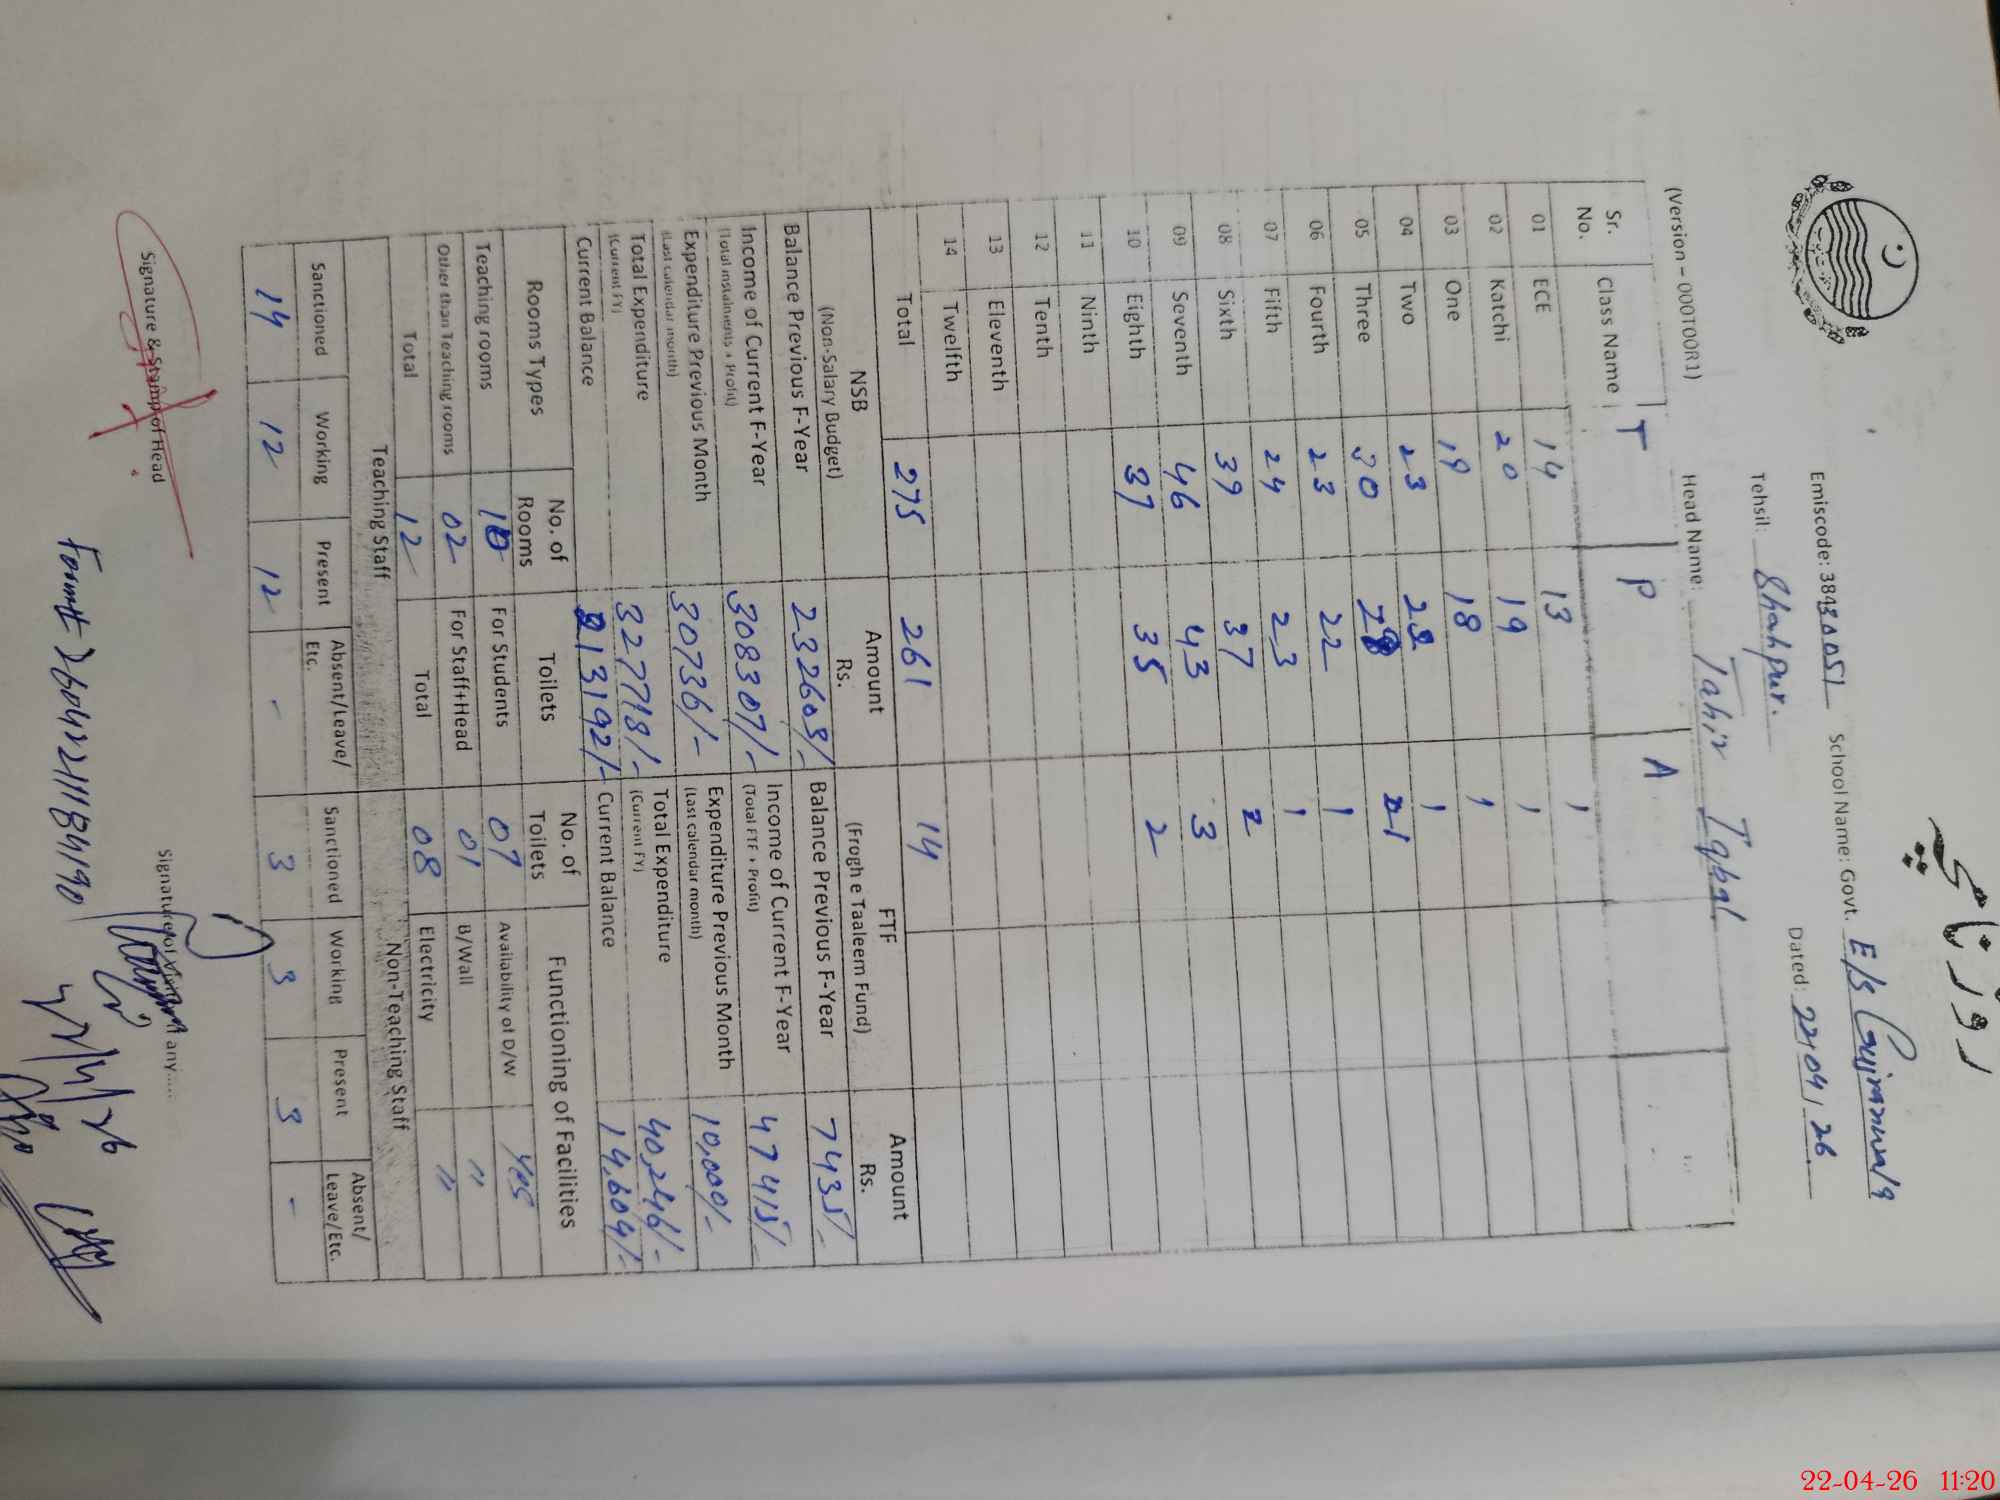 روزنامچہ
Emiscode: 38430051 School Name: Govt. E/S Gujranwala
Tehsil: Shahpur. Dated: 22/04/26
Head Name: Tahir Iqbal
(Version – 000T00R1)
Sr. No. Class Name T P A
01 ECE 14 13 1
02 Katchi 20 19 1
03 One 19 18 1
04 Two 23 22 1
05 Three 30 1
06 Fourth 23 22 1
07 Fifth 24 23 1
08 Sixth 39 37 2
09 Seventh 46 43 3
10 Eighth 37 35 2
11 Ninth
12 Tenth
13 Eleventh
14 Twelfth
Total 275 261 14
NSB (Non-Salary Budget) Amount Rs. FTF (Frogh e Taaleem Fund) Amount Rs.
Balance Previous F-Year 232603/- Balance Previous F-Year 7435/-
Income of Current F-Year (Total instalments + Profit) 308307/- Income of Current F-Year (Total FTF + Profit) 47415/-
Expenditure Previous Month (Last calendar month) 30736/- Expenditure Previous Month (Last calendar month) 10,000/-
Total Expenditure (Current FY) 327718/- Total Expenditure (Current FY) 40,246/-
Current Balance 213192/- Current Balance 14,604/-
Rooms Types No. of Rooms Toilets No. of Toilets Functioning of Facilities
Teaching rooms 10 For Students 07 Availability of D/W Yes
Other than Teaching rooms 02 For Staff+Head 01 B/Wall "
Total 12 Total 08 Electricity "
Teaching Staff Non-Teaching Staff
Sanctioned Working Present Absent/Leave/Etc. Sanctioned Working Present Absent/Leave/Etc.
14 12 12 - 3 3 3 -
Signature & Stamp of Head Signature of any.....
22-04-26 11:20